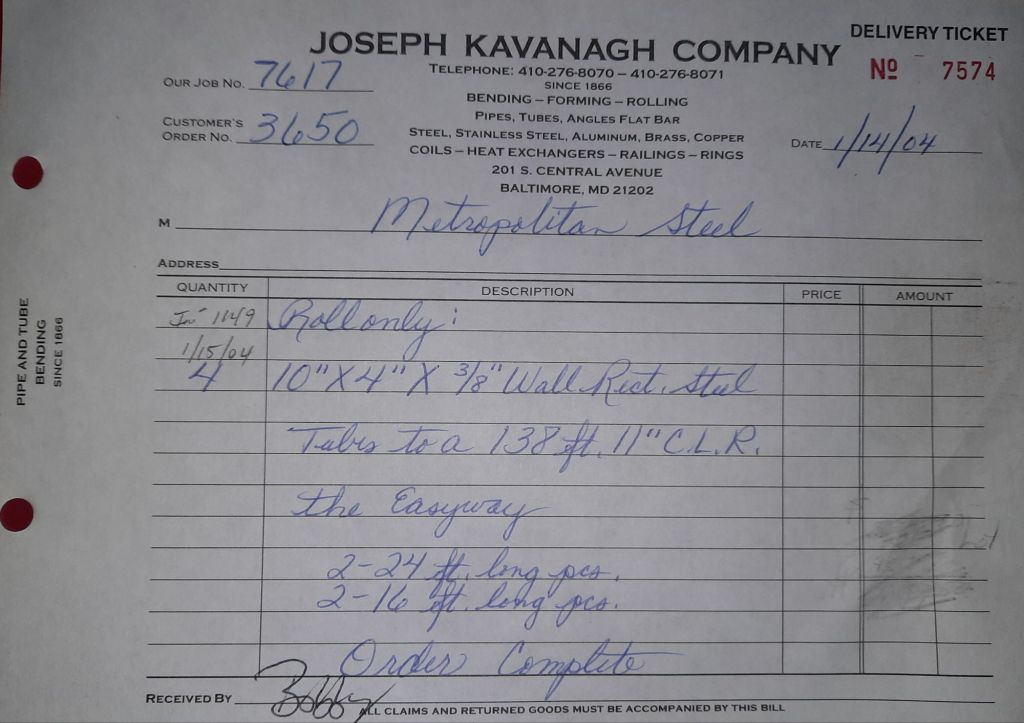 DELIVERY TICKET
JOSEPH KAVANAGH COMPANY
Nº 7574
OUR JOB NO. 7617
TELEPHONE: 410-276-8070 – 410-276-8071
SINCE 1866
BENDING – FORMING – ROLLING
CUSTOMER'S
ORDER NO. 3650
PIPES, TUBES, ANGLES FLAT BAR
STEEL, STAINLESS STEEL, ALUMINUM, BRASS, COPPER
DATE 1/14/04
COILS – HEAT EXCHANGERS – RAILINGS – RINGS
201 S. CENTRAL AVENUE
BALTIMORE, MD 21202
M Metropolitan Steel
ADDRESS
QUANTITY DESCRIPTION PRICE AMOUNT
1149 Roll only:
1/15/04
4 10" X 4" X 3/8" Wall Rect. Steel
Tubes to a 138 ft. 11" C.L.R.
the Easyway
2-24 ft. long pcs.
2-16 ft. long pcs.
Order Complete
RECEIVED BY Bobby
ALL CLAIMS AND RETURNED GOODS MUST BE ACCOMPANIED BY THIS BILL
PIPE AND TUBE
BENDING
SINCE 1866